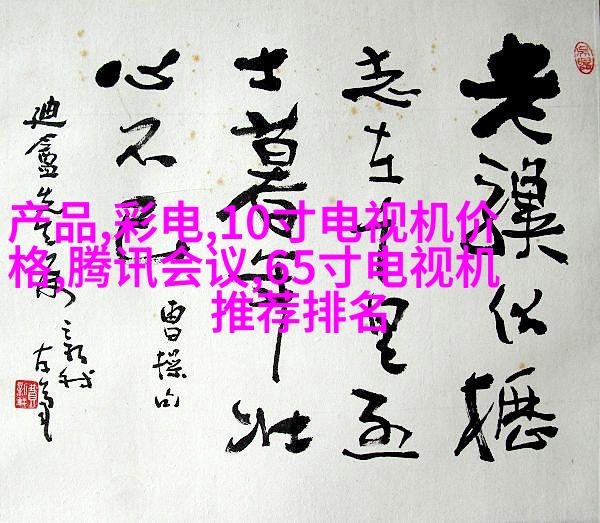 产品,彩电,10寸电视机价
格,腾讯会议,65寸电视机
推荐排名
老驥伏櫪
志在千里烈
士暮年壮
心不已
曹操句
迪盦先生属